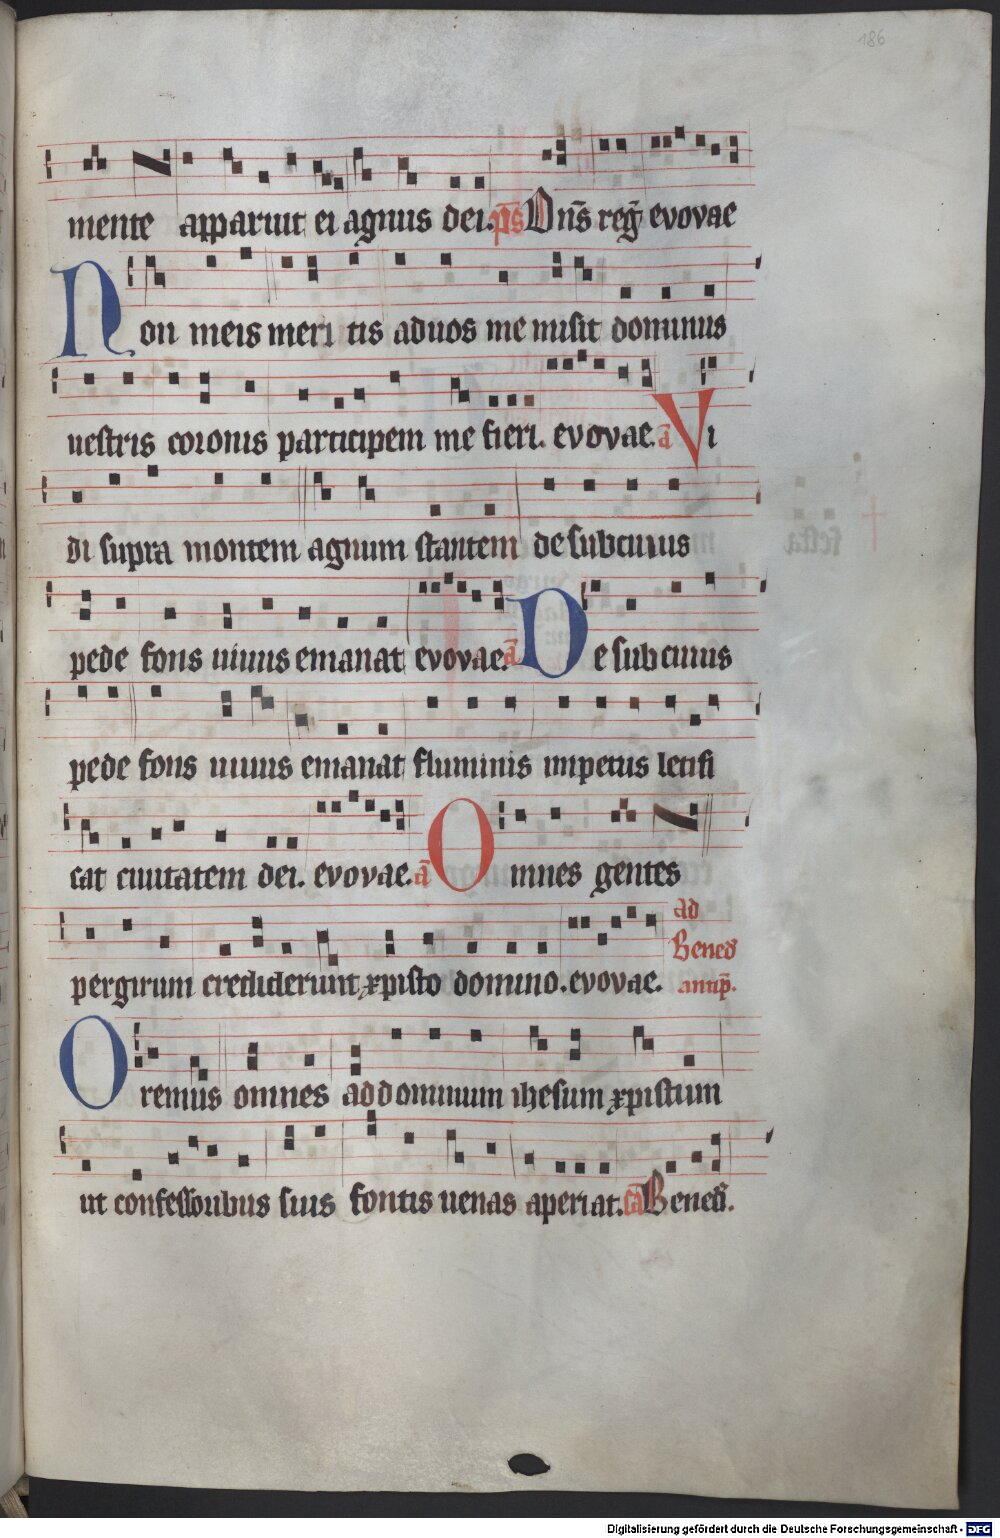 186
mente apparuit ei agnus dei. p̄s Dn̄s reḡ evovae
Non meis meri tis ad uos me misit dominus
uestris coronis participem me fieri. evovae. a̅ Vi
di supra montem agnum stantem de sub cuius
pede fons uiuus emanat evovae. a̅ De sub cuius
pede fons uiuus emanat fluminis impetus letifi
cat ciuitatem dei. evovae. a̅ Omnes gentes
per girum crediderunt xpisto domino. evovae. ad Bened antip̄.
Oremus omnes ad dominum ihesum xpistum
ut confessoribus suis fontis uenas aperiat. ca̅ Bened̄.
Digitalisierung gefördert durch die Deutsche Forschungsgemeinschaft - DFG